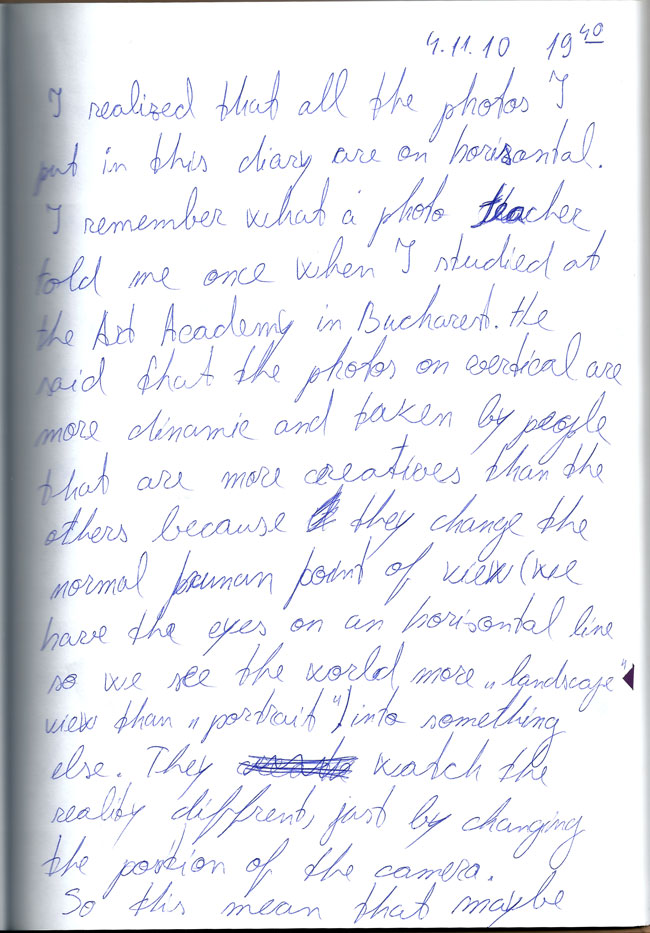 4.11.10 19 40
I realized that all the photos I
put in this diary are on horisontal.
I remember what a photo teacher
told me once when I studied at
the Art Academy in Bucharest. He
said that the photos on vertical are
more dinamic and taken by people
that are more creatives than the
others because they change the
normal human point of view (we
have the eyes on an horisontal line
so we see the world more „landscape"
view than „portrait") into something
else. They watch the
reality diffrent, just by changing
the postion of the camera.
So this mean that maybe